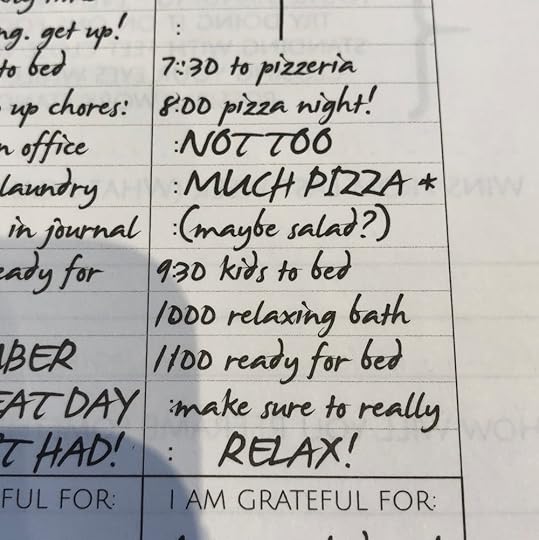 ng. get up!
:
to bed
7:30 to pizzeria
up chores:
8:00 pizza night!
n office
:NOT TOO
laundry
: MUCH PIZZA *
in journal
:(maybe salad?)
eady for
9:30 kids to bed
1000 relaxing bath
MBER
1100 ready for bed
EAT DAY
:make sure to really
T HAD!
: RELAX!
FUL FOR:
I AM GRATEFUL FOR: